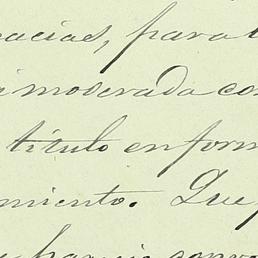 acias, para
moderada con
título en form
miento. Que